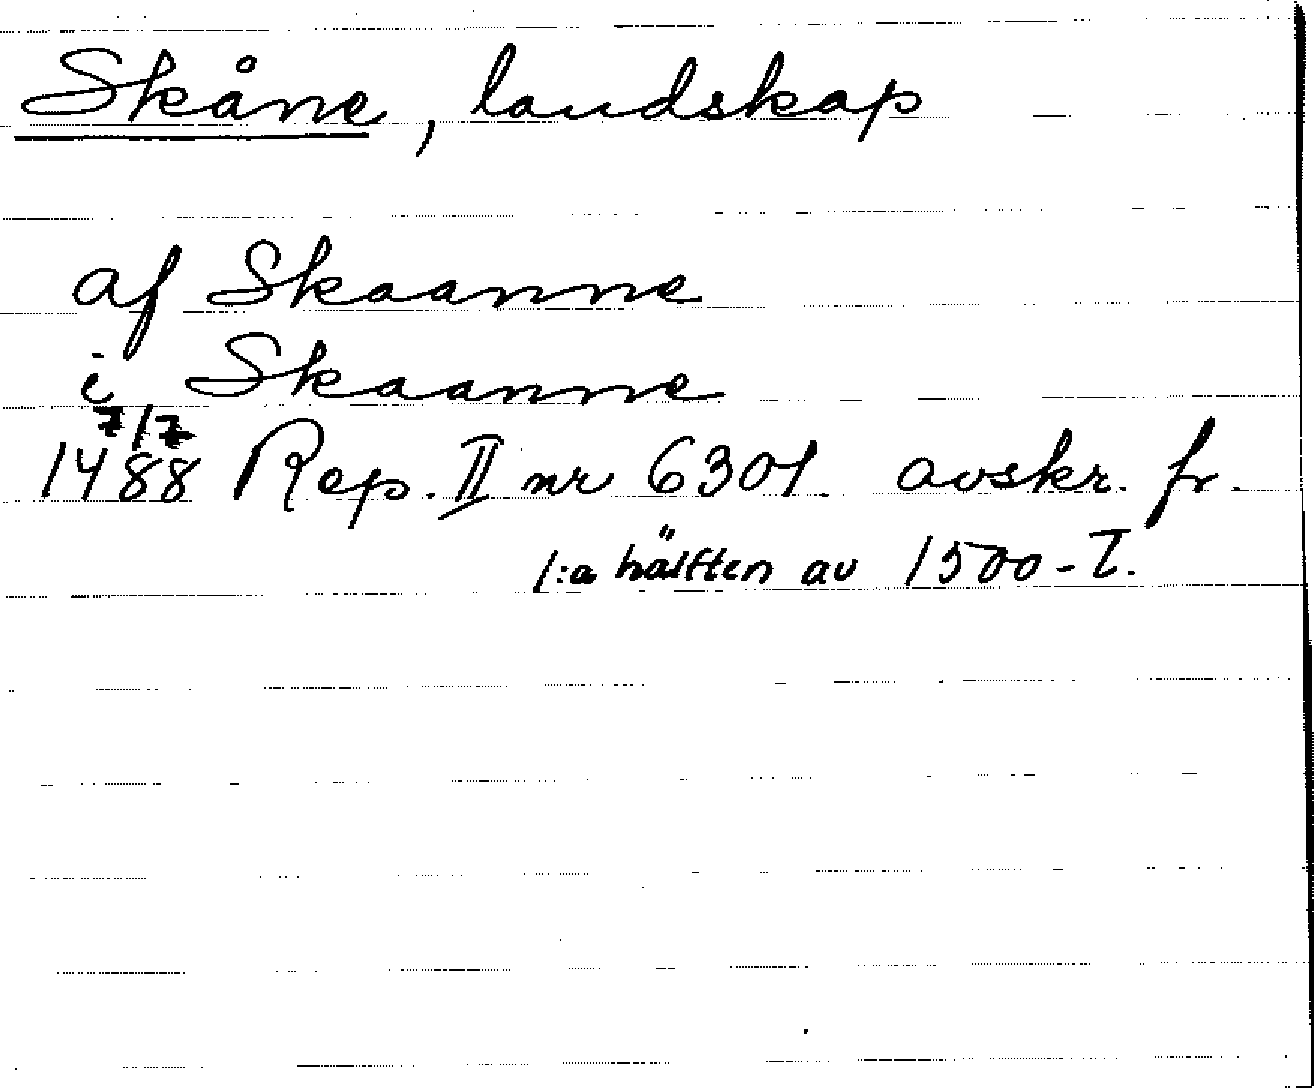 Skåne, landskap
af Skaanne
i Skaanne
7/7
1488 Rep. II nr 6301. avskr. fr.
1:a hälften av 1500-t.